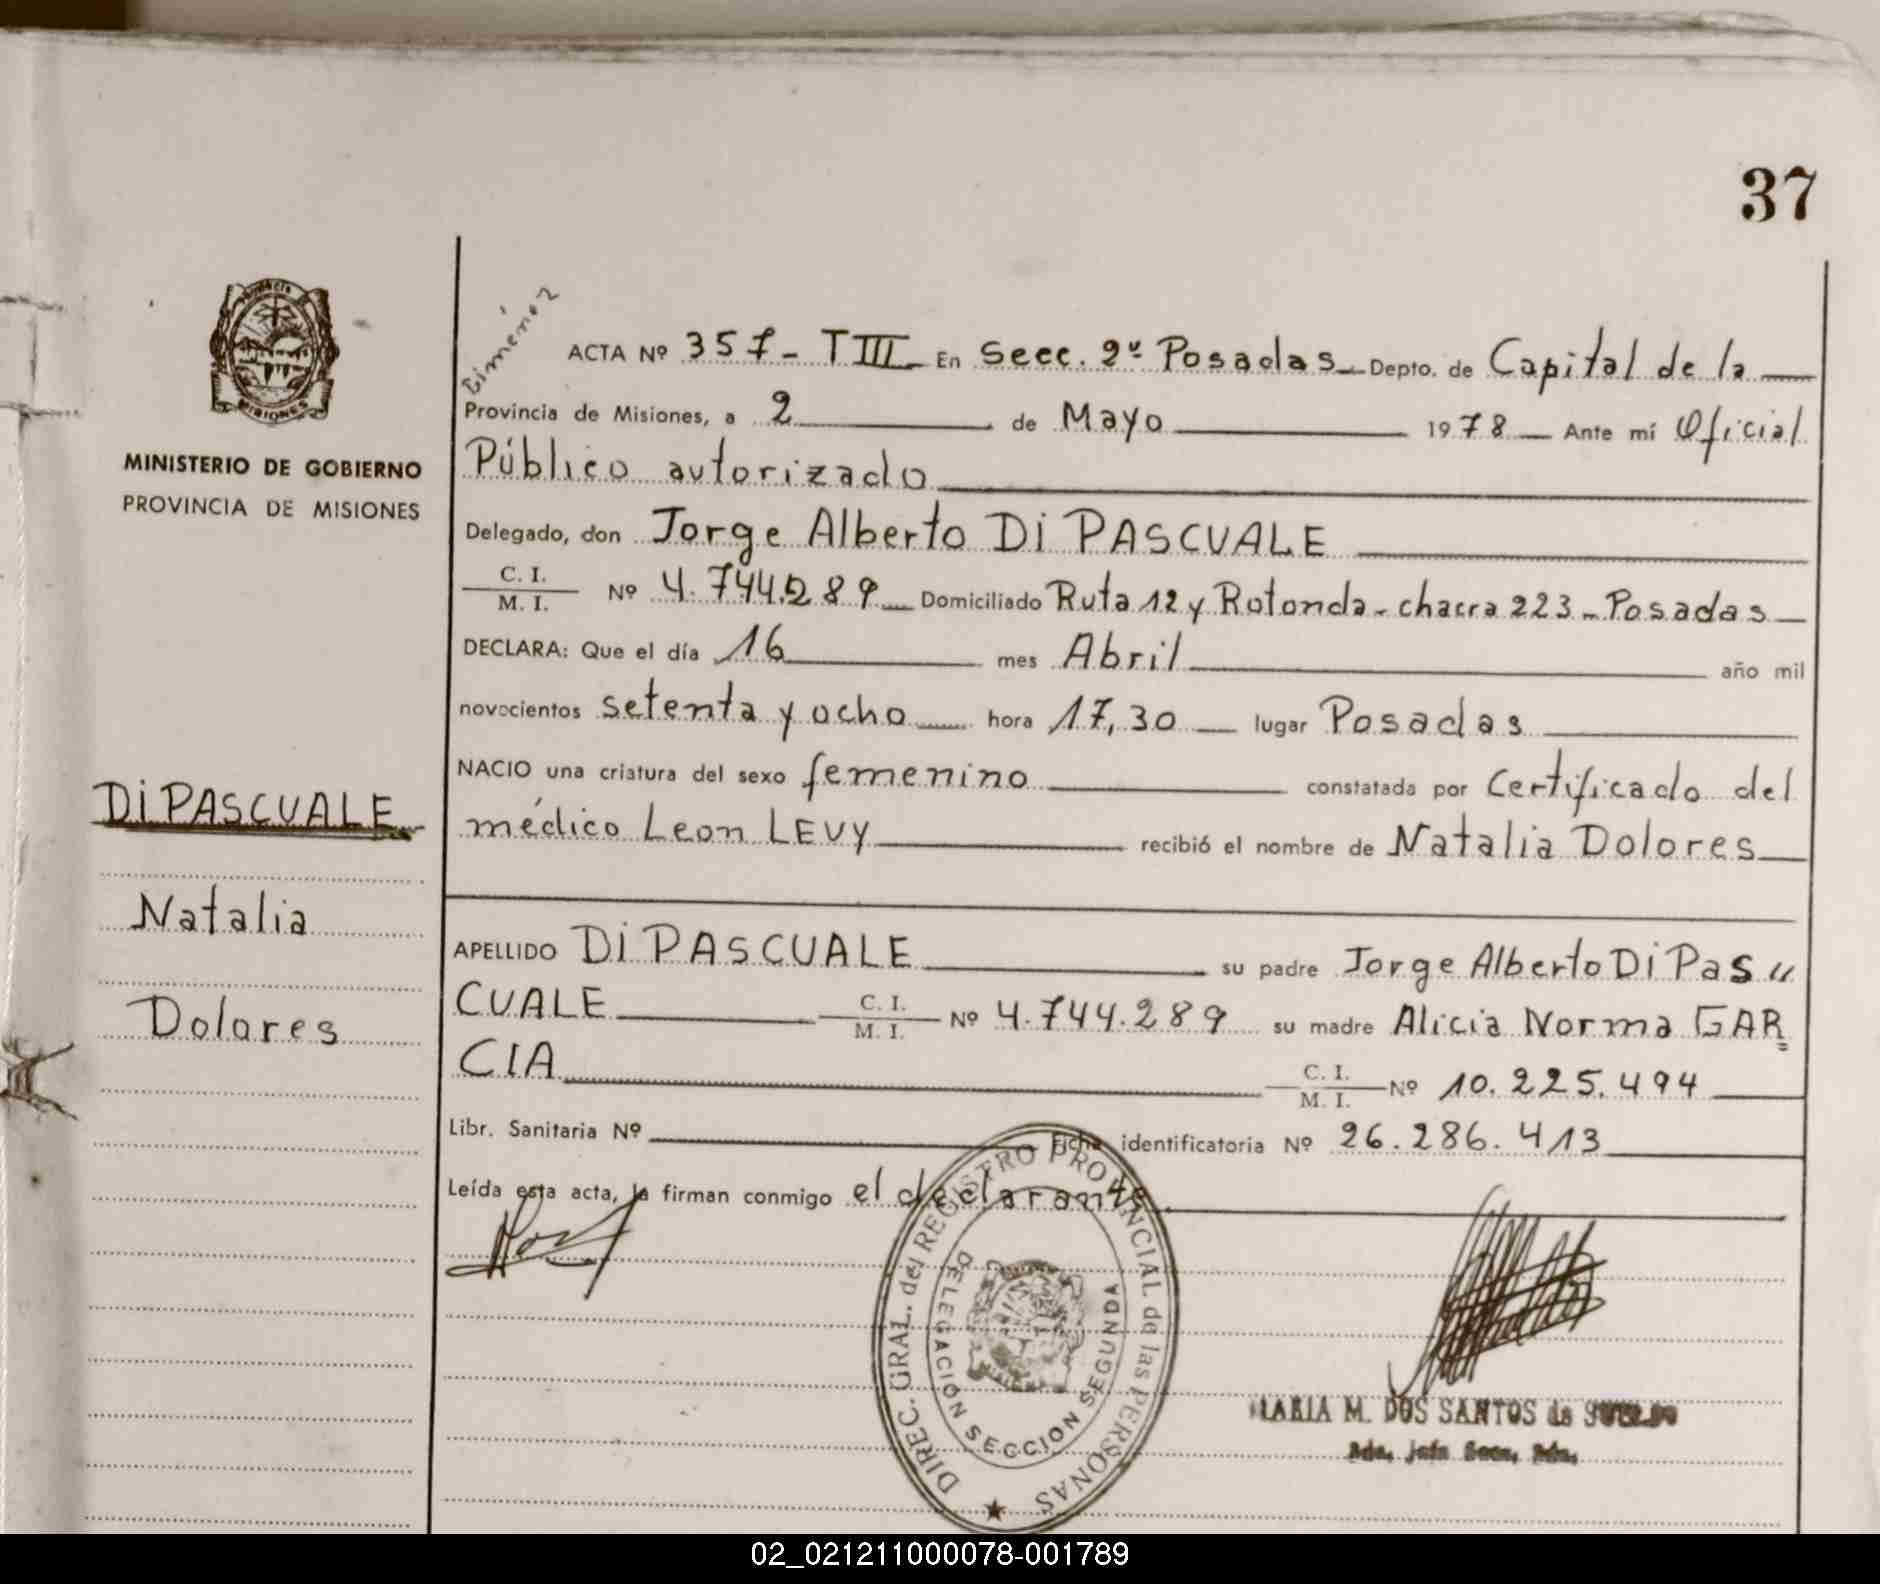 37
Dimenoz
MISIONES
MINISTERIO DE GOBIERNO
PROVINCIA DE MISIONES
DI PASCUALE
Natalia
Dolores
ACTA Nº 357 - T III En Secc. 2ª Posadas Depto. de Capital de la
Provincia de Misiones, a 2 de Mayo 1978 Ante mí Oficial
Público autorizado
Delegado, don Jorge Alberto DI PASCUALE
C. I.
M. I. Nº 4.744.289 Domiciliado Ruta 12 y Rotonda - chacra 223 - Posadas
DECLARA: Que el día 16 mes Abril año mil
novecientos setenta y ocho hora 17,30 lugar Posadas
NACIO una criatura del sexo femenino constatada por Certificado del
médico Leon LEVY recibió el nombre de Natalia Dolores
APELLIDO DI PASCUALE su padre Jorge Alberto Di Pas
CUALE C. I.
M. I. Nº 4.744.289 su madre Alicia Norma GAR=
CIA C. I.
M. I. Nº 10.225.494
Libr. Sanitaria Nº Ficha identificatoria Nº 26.286.413
Leída esta acta, la firman conmigo el declarante.
DIREC. GRAL. del REGISTRO PROVINCIAL de las PERSONAS
DELEGACIÓN SECCION SEGUNDA
MARIA M. DOS SANTOS de
02_021211000078-001789